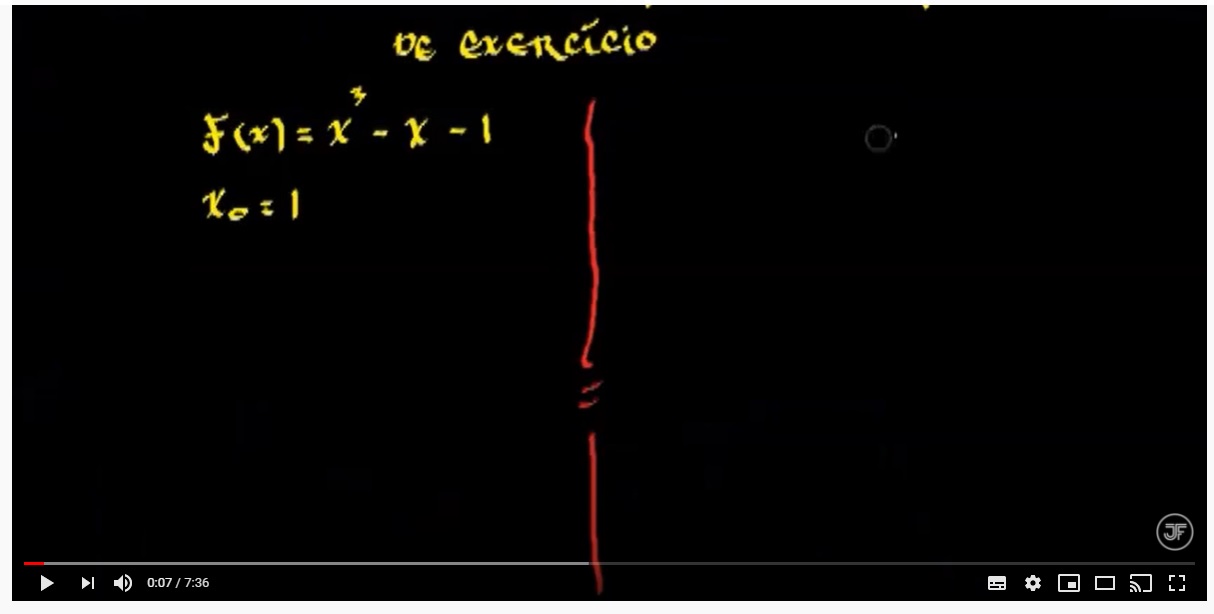 DE EXERCÍCIO
F(x) = x³ - x - 1
x₀ = 1
JF
0:07 / 7:36